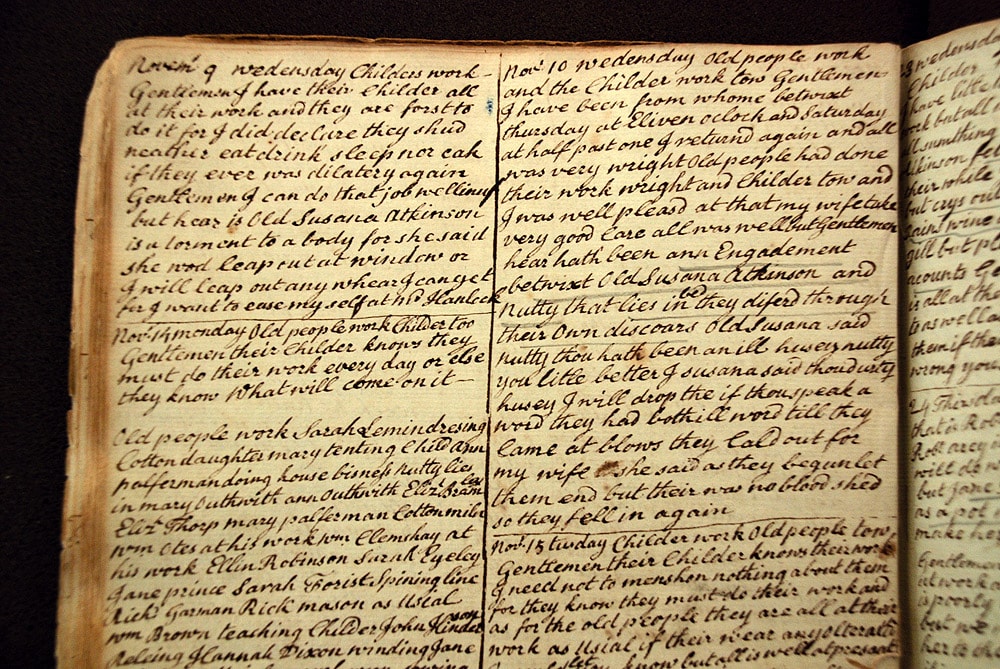 Novemr 9 wedensday Childers work
Gentlemen I have their Childer all
at their work and they are forst to
do it for I did declare they shud
neather eat drink sleep nor cak
if they ever was dilatery again
Gentlemen I can do that job welliny
but hear is Old Susana Atkinson
is a torment to a body for she said
she wod leap out at window or
I will leap out any whear I can get
for I want to ease my self at Mr Hanlock
Novr 14 monday Old people work Childer too
Gentlemen their Childer knows they
must do their work every day or else
they know What will come on it
Old people work Sarah Lemin dresing
Cotton daughter mary tenting Child Ann
palferman doing house bisness Nutty lies
in mary Outhwith ann Outhwith Elizr
Elizr Thorp mary palferman Cotton
wm Otes at his work wm Clemshay at
his work Ellin Robinson Sarah Eyeley
Jane prince Sarah Forist Spining line
Rickd Garman Rick mason as Usial
wm Brown teaching Childer John
Releing Hannah Dixon winding Jane
Novr 10 wedensday Old people work
and the Childer work tow Gentlemen
I have been from whome betwixt
thursday at Eliven oclock and Saturday
at half past one I returnd again and all
was very wright Old people had done
their work wright and Childer tow and
I was well pleasd at that my wife take
very good Care all was well but Gentlemen
hear hath been ann Engadement
betwixt Old Susana Atkinson and
Nutty that lies in be they diferd through
their Own discoars Old Susana said
nutty thou hath been an ill husey nutty
you litle better I susana said thou durty
husey I will drop the if thou speak a
word they had both ill word till they
Came at blows they Cald out for
my wife she said as they begun let
them end but their was no blood shed
so they fell in again
Novr 15 tusday Childer work Old people tow
Gentlemen their Childer knows their work
I need not to menshon nothing about them
for they know they must do their work and
as for the old people they are all at their
work as Usial if their wear any olterati
know but all is well at presant
23 wedensda
Childer
have litt
work but all
sumthing
Atkinson
their while
but crys out
wine
gill but
acounts Ge
is all at the
to as well a
them if the
wrong you
24 Thursda
that is Rob
Robt
will do
but Jane
as a pot
make he
Gentleme
at work
is poorly
but we
her to